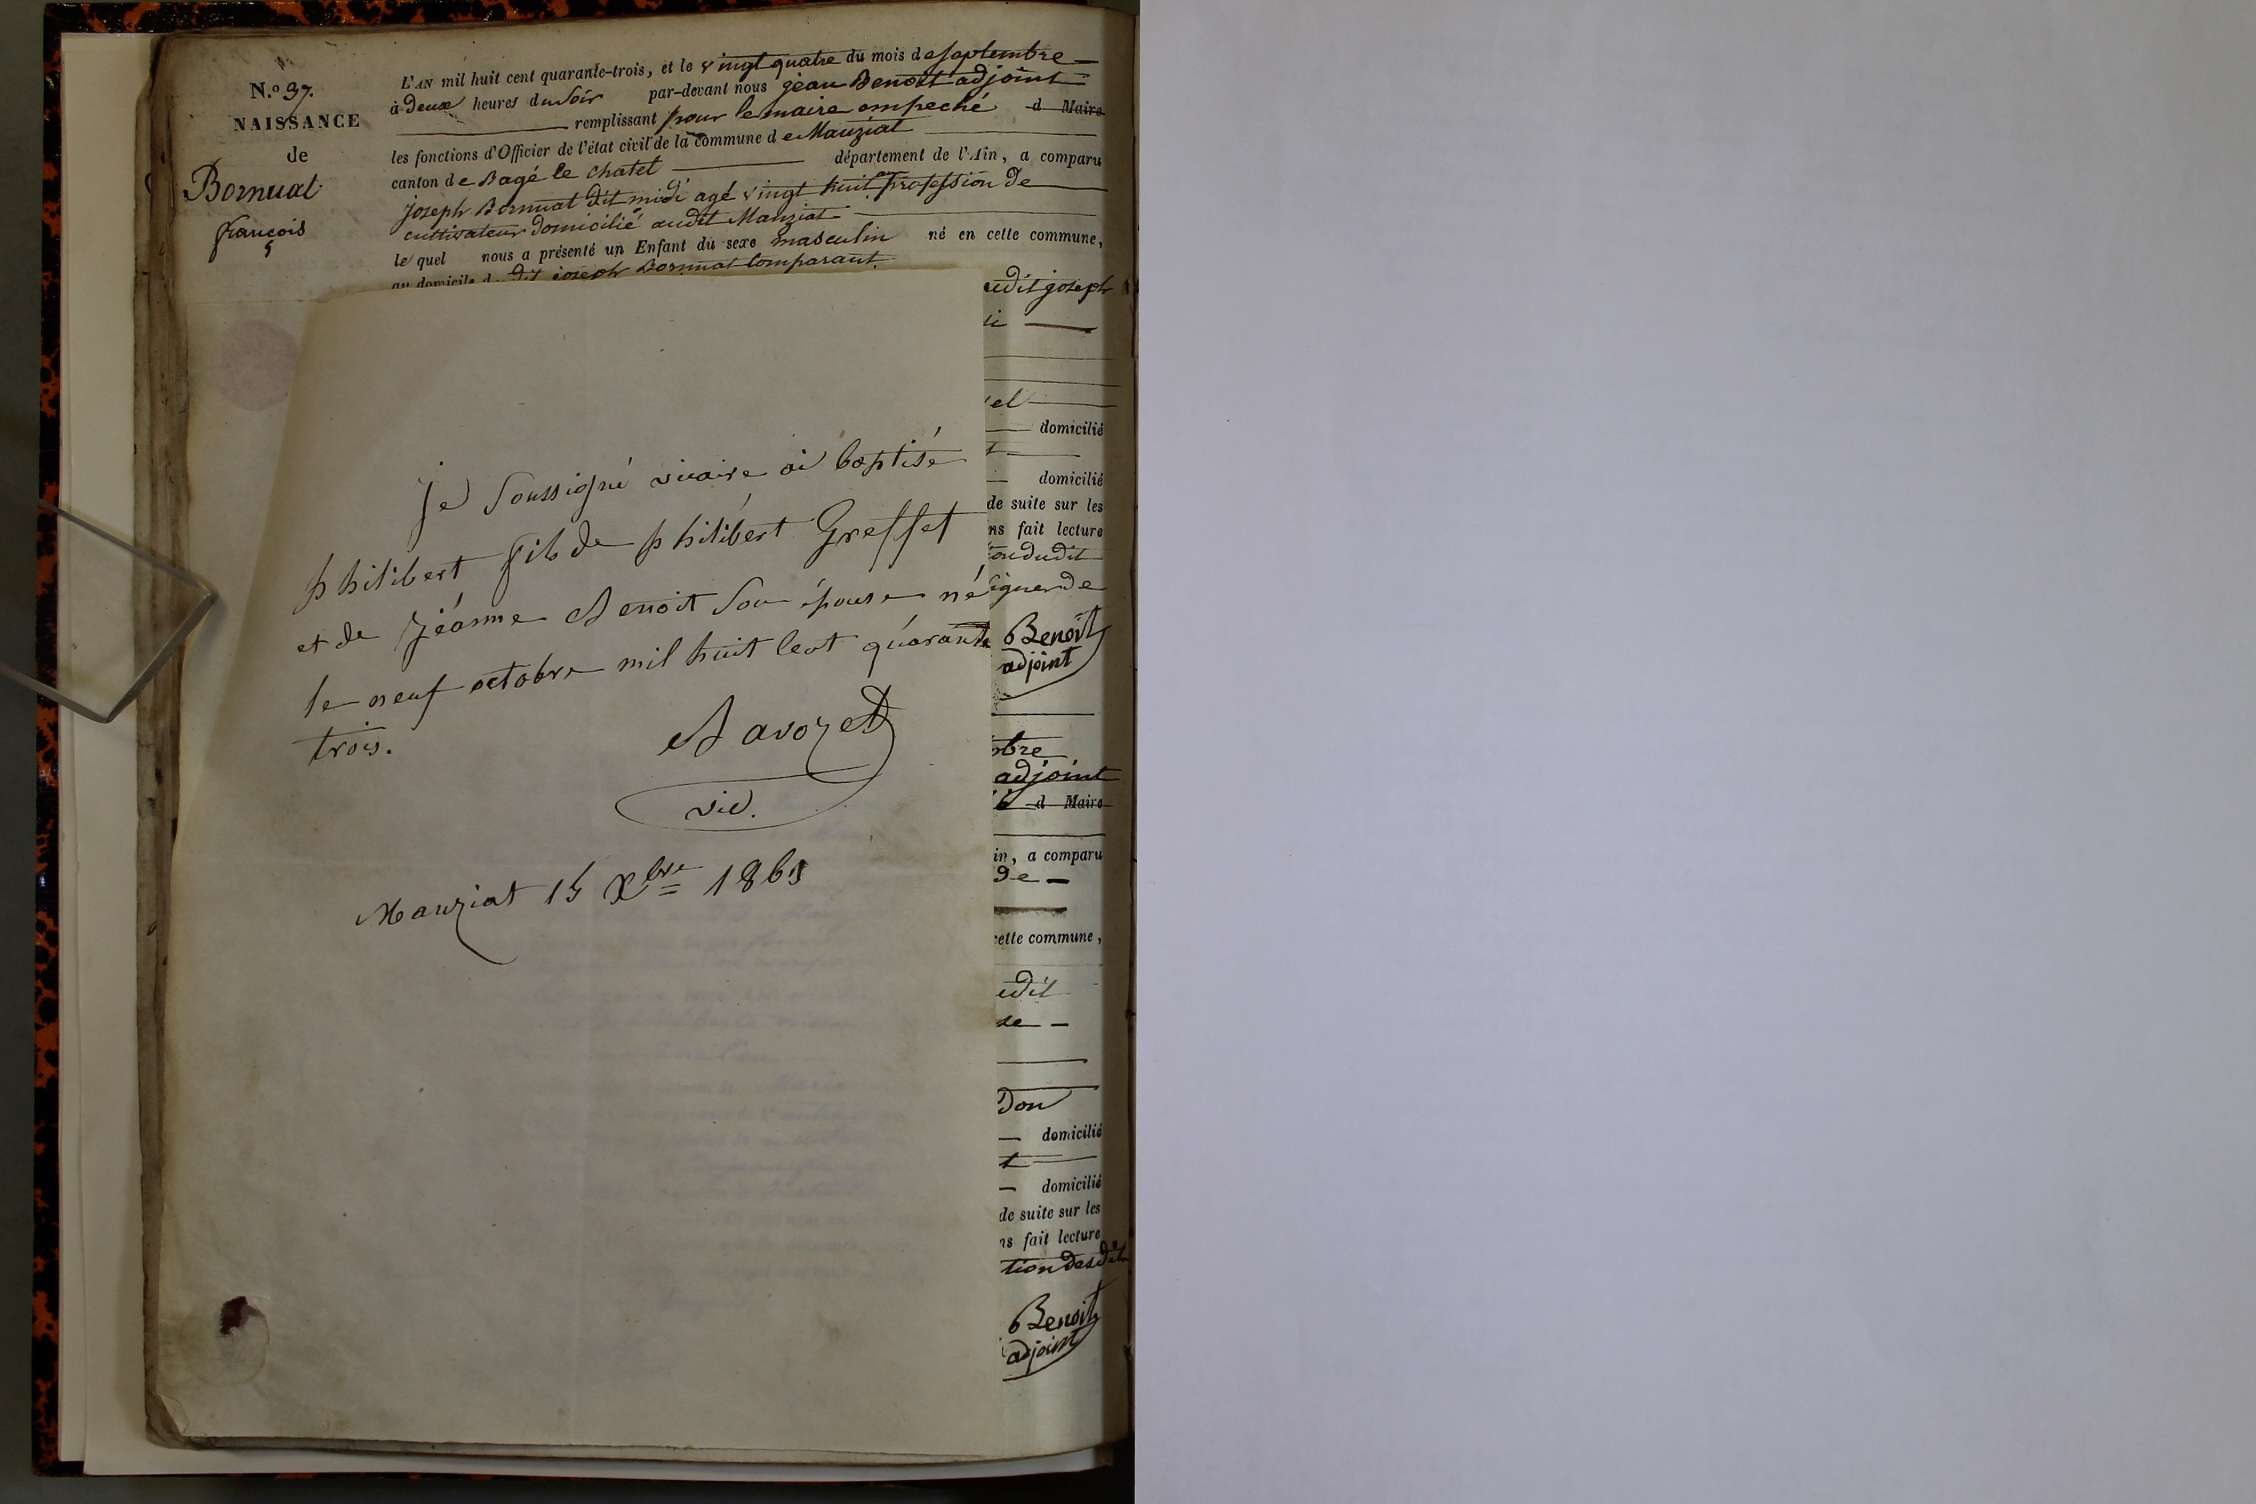 N.º 37.
NAISSANCE
de
Bornuat
françois
L'AN mil huit cent quarante-trois, et le vingt quatre du mois de septembre
à deux heures du soir par-devant nous jean Benoit adjoint
remplissant pour le maire empeché d Maire
les fonctions d'Officier de l'état civil de la commune de Manziat
canton de Bagé le chatel département de l'Ain, a comparu
joseph Bornuat dit midi agé vingt huit profession de
cultivateur domicilié audit Manziat
le quel nous a présenté un Enfant du sexe masculin né en cette commune,
au domicile d dit joseph Bornuat Comparant
je soussigné vicaire ai baptisé
philibert fils de philibert Greffet
et de jéanne Benoit son épouse né
le neuf octobre mil huit cent quarante
trois.
vic.
Manziat 15 Xbre
udit joseph
domicilié
domicilié
de suite sur les
ns fait lecture
dudit
signer de
Benoit
adjoint
obre
adjoint
d Maire
in, a comparu
de
cette commune,
udit
domicilié
domicilié
de suite sur les
ns fait lecture
tion desdits
Benoit
adjoint